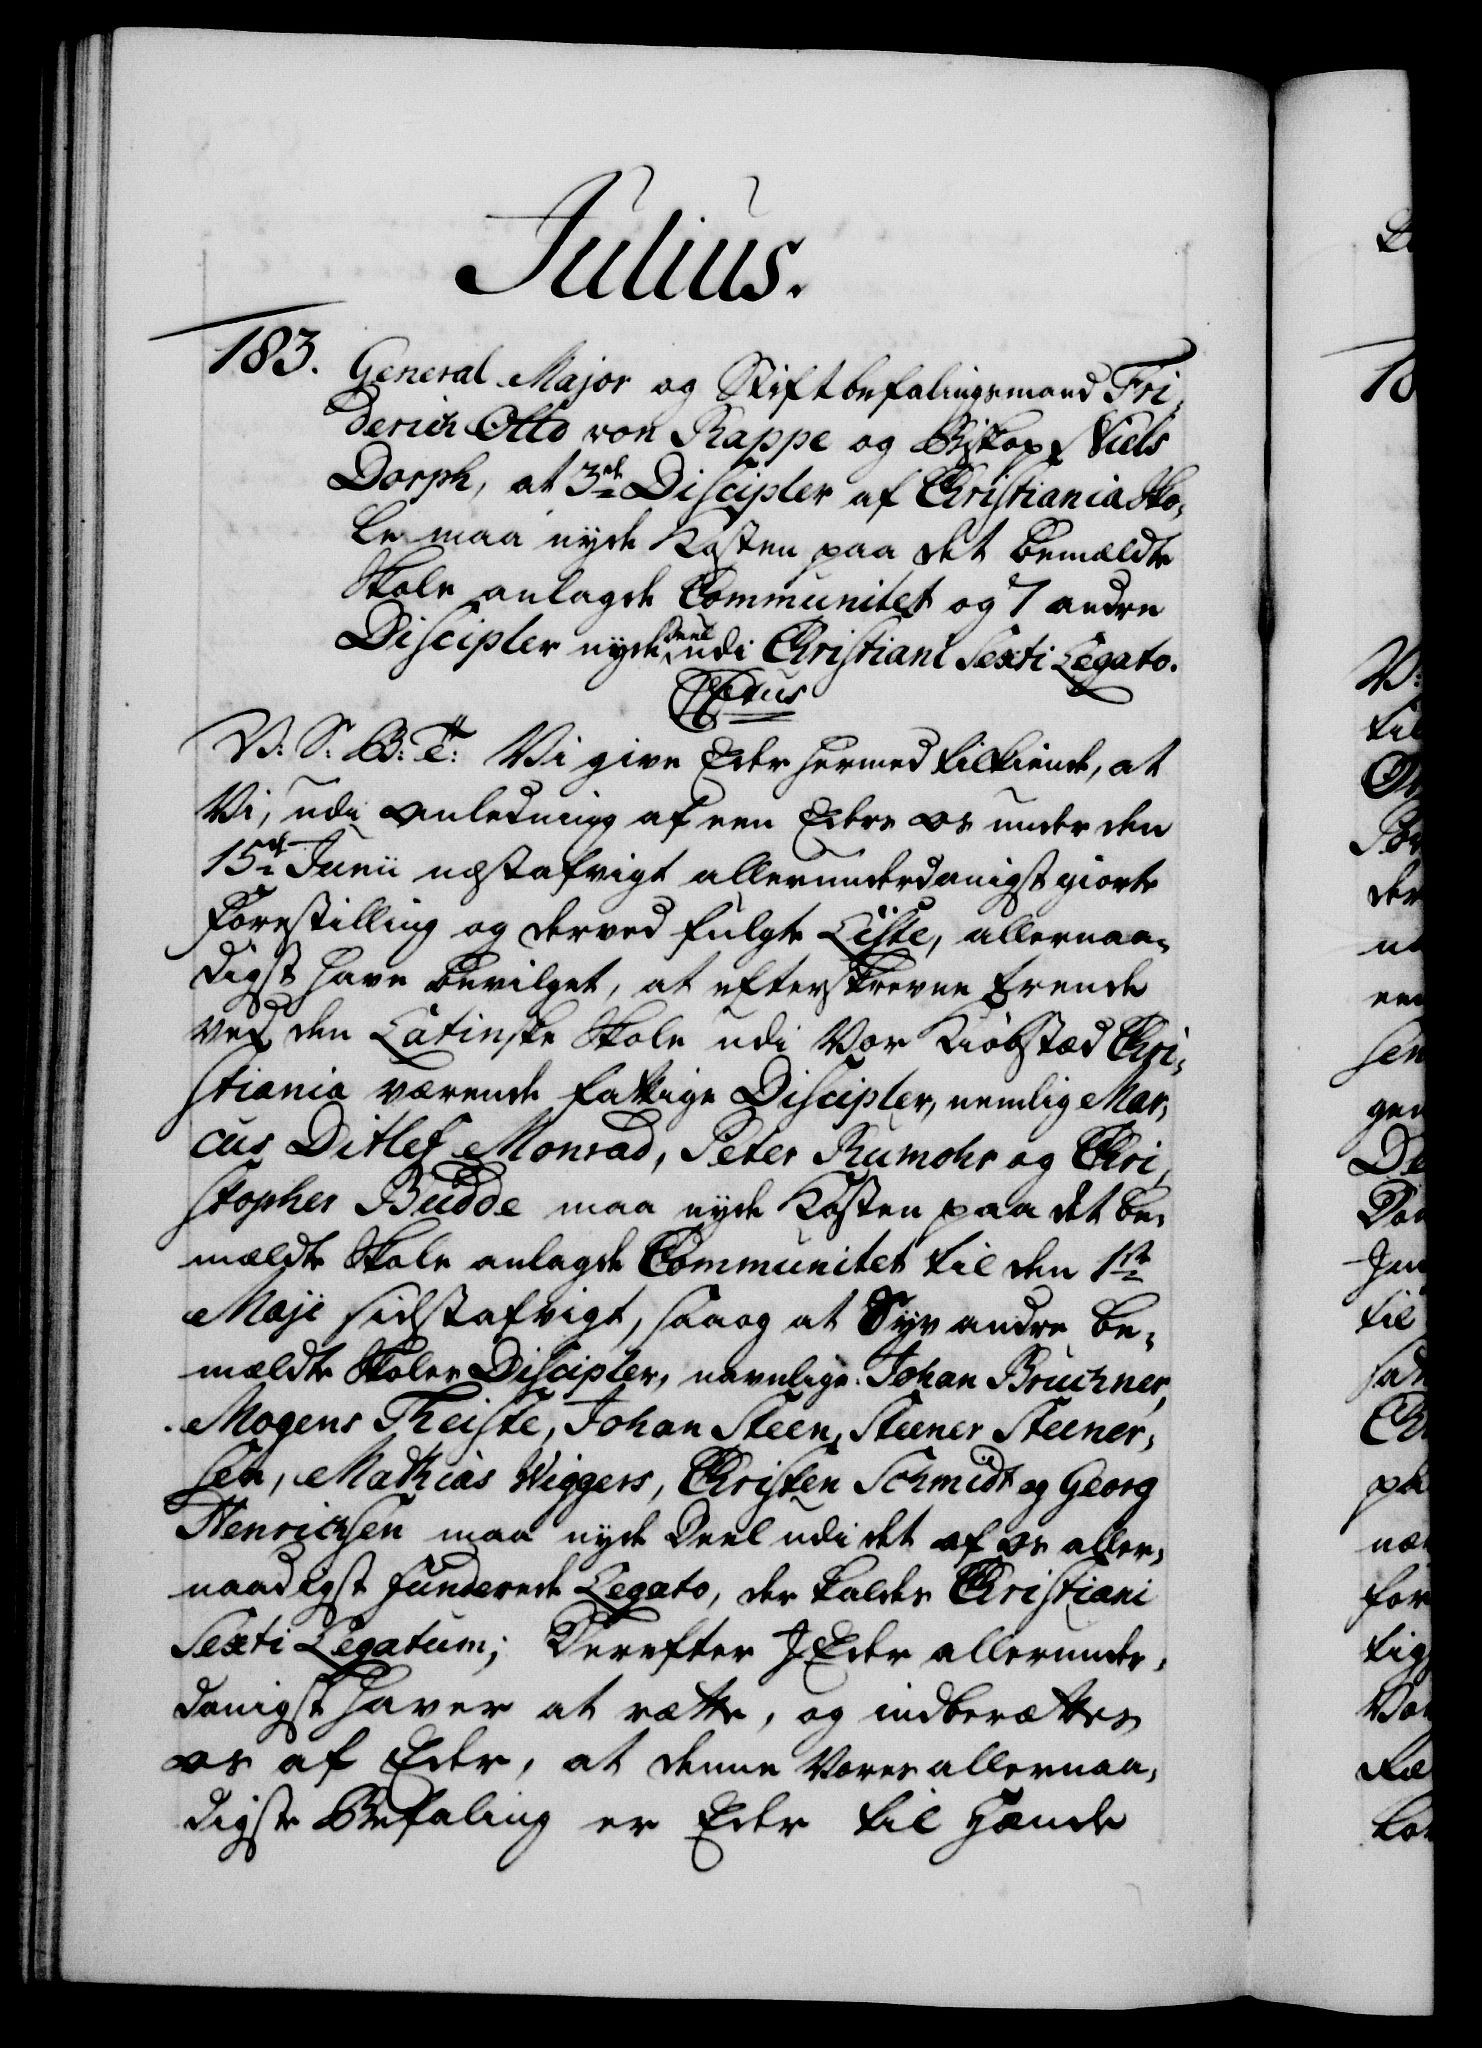 Julius.
183. General Major og Stiftbefalingsmand Fri,
derich Otto von Rappe og Biskop Niels
Dorph, at 3de Discipler af Christiania Sko,
le maa nyde Kosten paa det bemældte
Skole anlagde Communitet og 7 andre
Discipler nyde Deel udi Christiani Sexti Legato.
V: S: B: T: Vi give Eder hermed tilkiende, at
Vi, udi Anledning af een Eders os under den
15de Junii nestafvigt allerunderdanigst giorte
Forestilling og derved fulgte Liste, allernaa,
digst have bevilget, at efterskrevne trende
ved den Latinske Skole udi Vor Kiøbstæd Chri,
stiania værende fattige Discipler, nemlig Mar,
cus Ditlef Monrad, Peter Rumohr og Chri,
stopher Budde maa nyde Kosten paa det be,
mældte Skole anlagde Communitet til den 1ste
Maji sidstafvigt, saa og at Syv andre be,
mældte Skoles Discipler, navnlige: Johan Bruchner,
Mogens Theiste, Johan Steen, Steener Steener,
sen, Mathias Wiggers, Christen Schmidt og Georg
Henrichsen maa nyde Deel udi det af os aller,
naadigst funderede Legato, der kaldes Christiani
Sexti Legatum; Derefter I Eder allerunder,
danigst haver at rætte, og indberættes
os af Eder, at denne Vores allernaa,
digste Befaling er Eder til Hænde